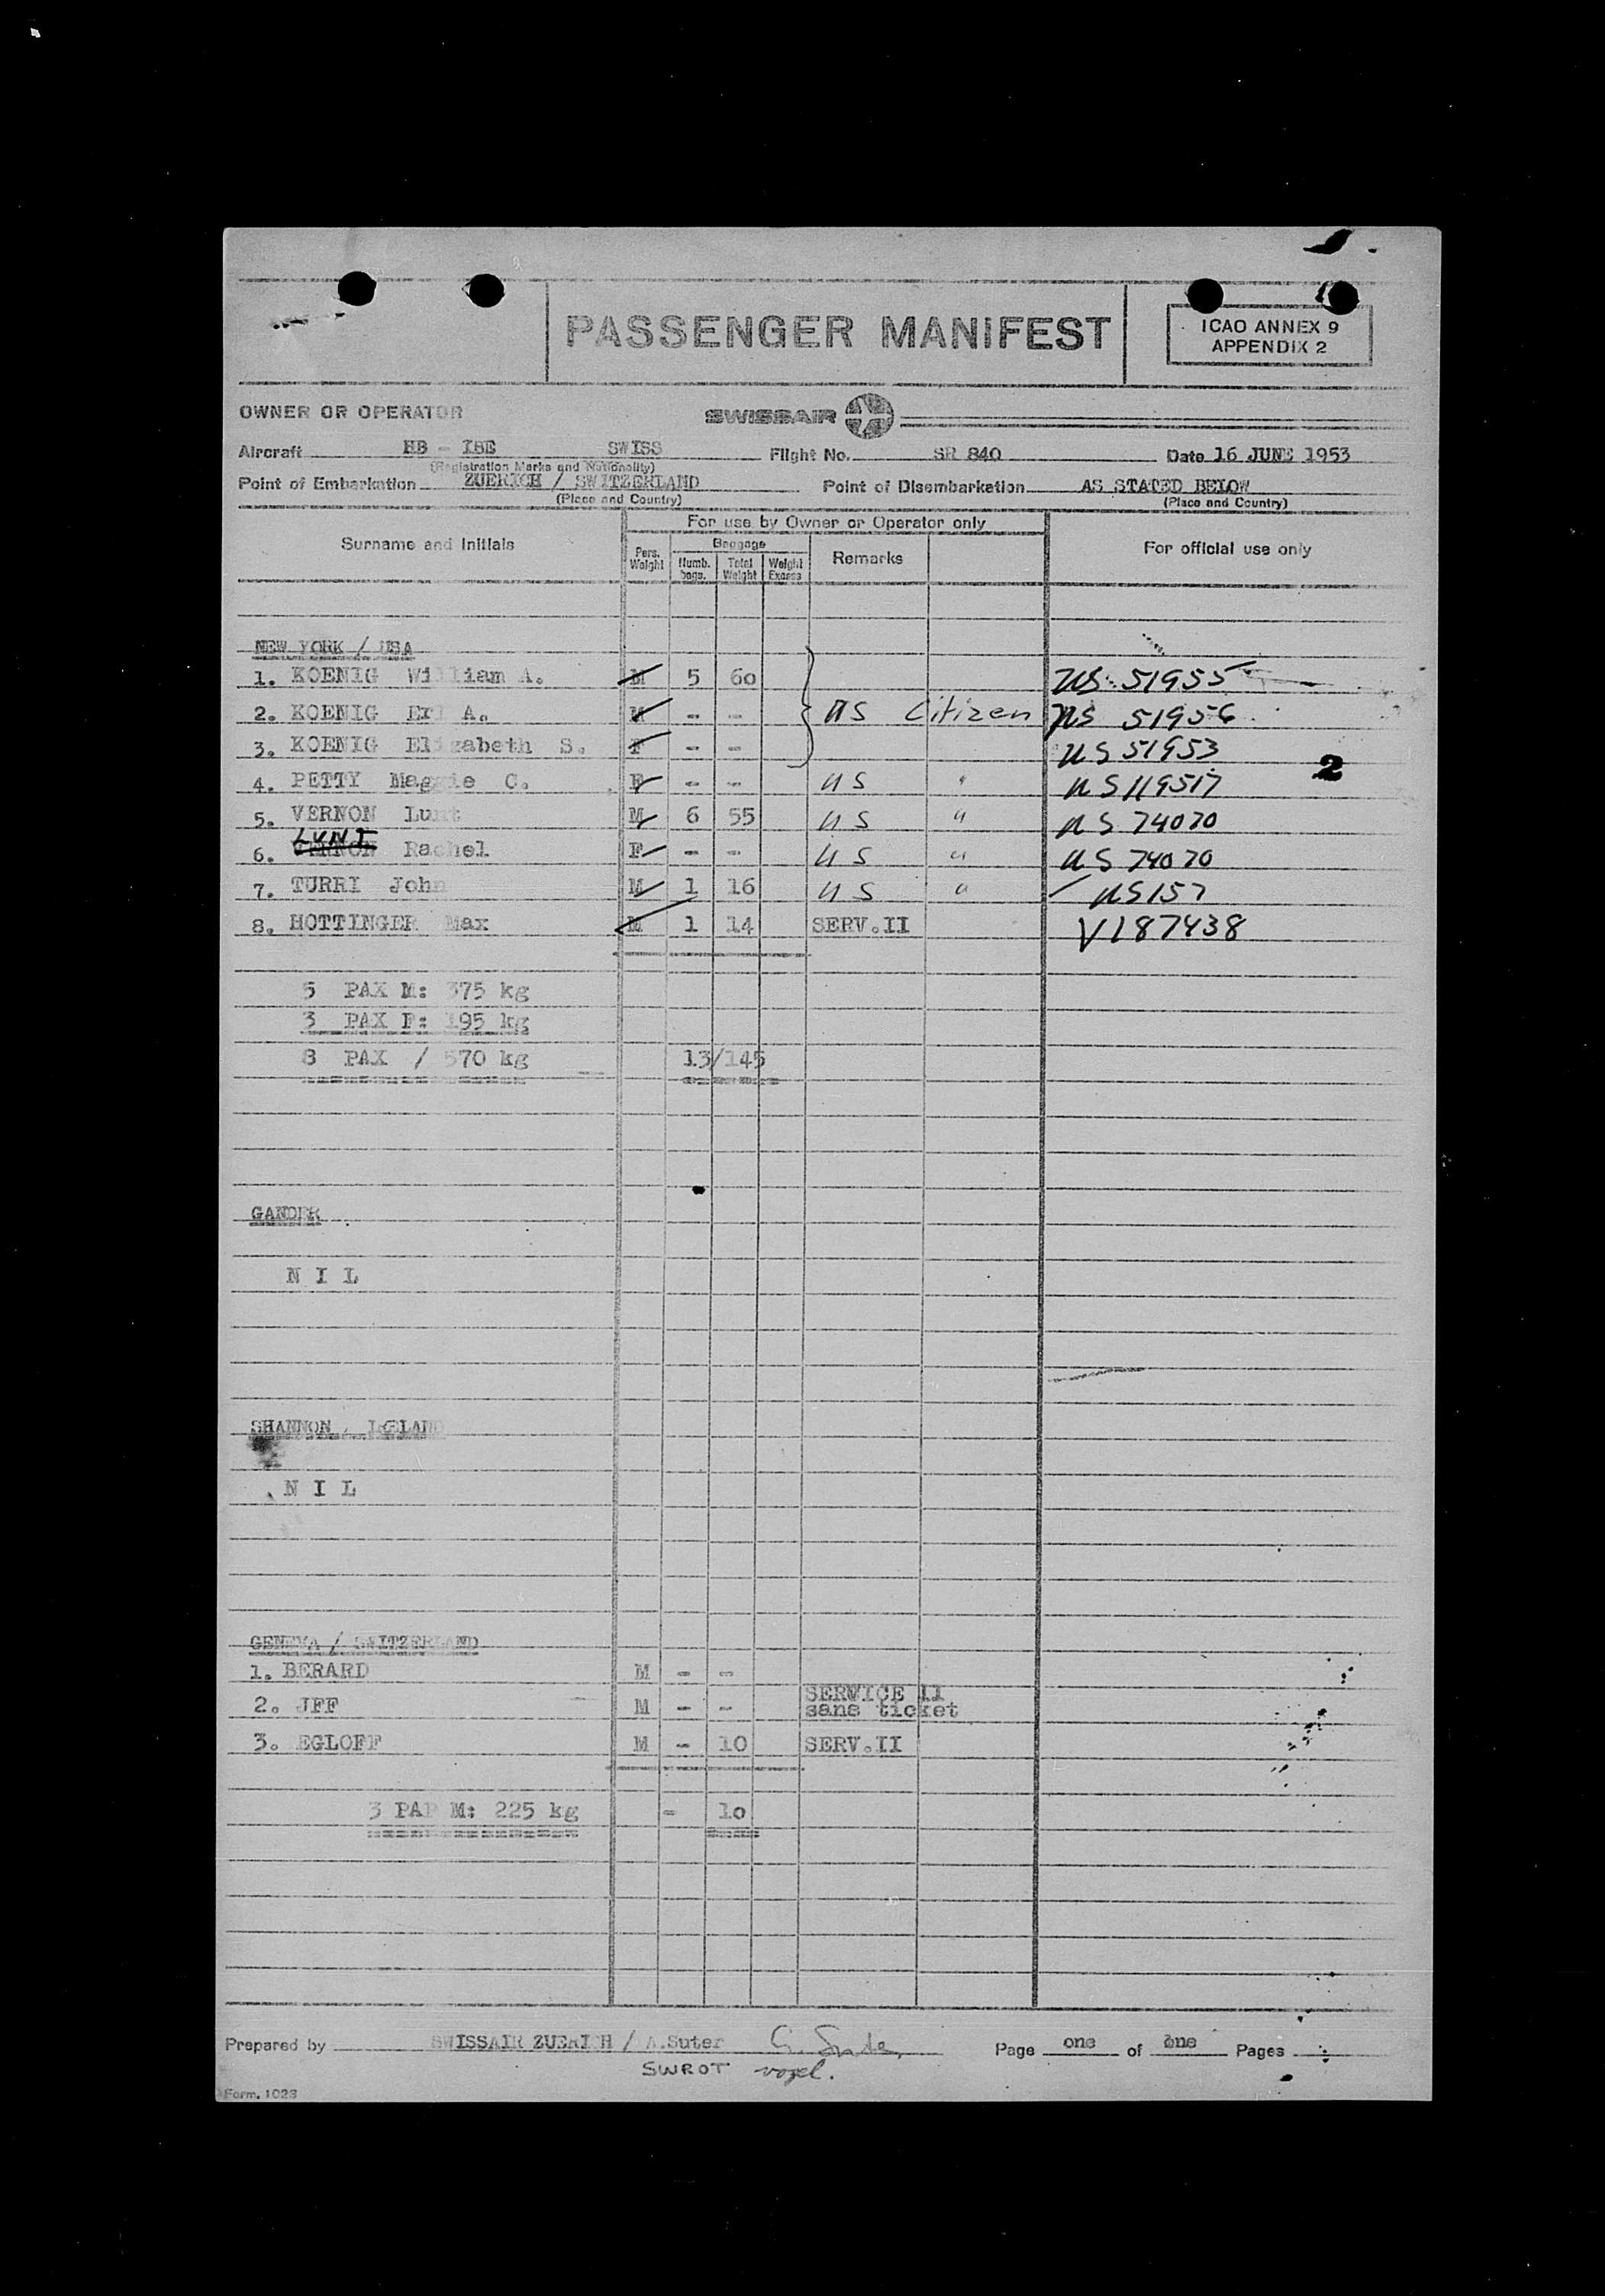 PASSENGER MANIFEST
ICAO ANNEX 9
APPENDIX 2
OWNER OR OPERATOR SWISSAIR
Aircraft HB - IBE SWISS Flight No. SR 840 Date 16 JUNE 1953
(Registration Marks and Nationality)
Point of Embarkation ZUERICH / SWITZERLAND Point of Disembarkation AS STATED BELOW
(Place and Country) (Place and Country)
For use by Owner or Operator only
Surname and Initials Pers. Weight Baggage Numb. bags. Total Weight Weight Excess Remarks For official use only
NEW YORK / USA
1. KOENIG William A. M 5 60 US 51955
2. KOENIG Eri A. M - - US Citizen US 51956
3. KOENIG Elizabeth S. F - - US 51953
2
4. PETTY Maggie C. F - - US " US 119517
5. VERNON Lunt M 6 55 US " US 74070
LUNT
6. VERNON Rachel F - - US " US 74070
7. TURRI John M 1 16 US " US 157
8. HOTTINGER Max M 1 14 SERV.II V187438
5 PAX M: 375 kg
3 PAX F: 195 kg
8 PAX / 570 kg 13/145
GANDER
N I L
SHANNON / IRELAND
N I L
GENEVA / SWITZERLAND
1. BERARD M - -
2. JFF M - - SERVICE II sans ticket
3. EGLOFF M - 10 SERV.II
3 PAP M: 225 kg - 10
Prepared by SWISSAIR ZUERICH / A.Suter Page one of one Pages
SWROT vogel.
Form. 1028